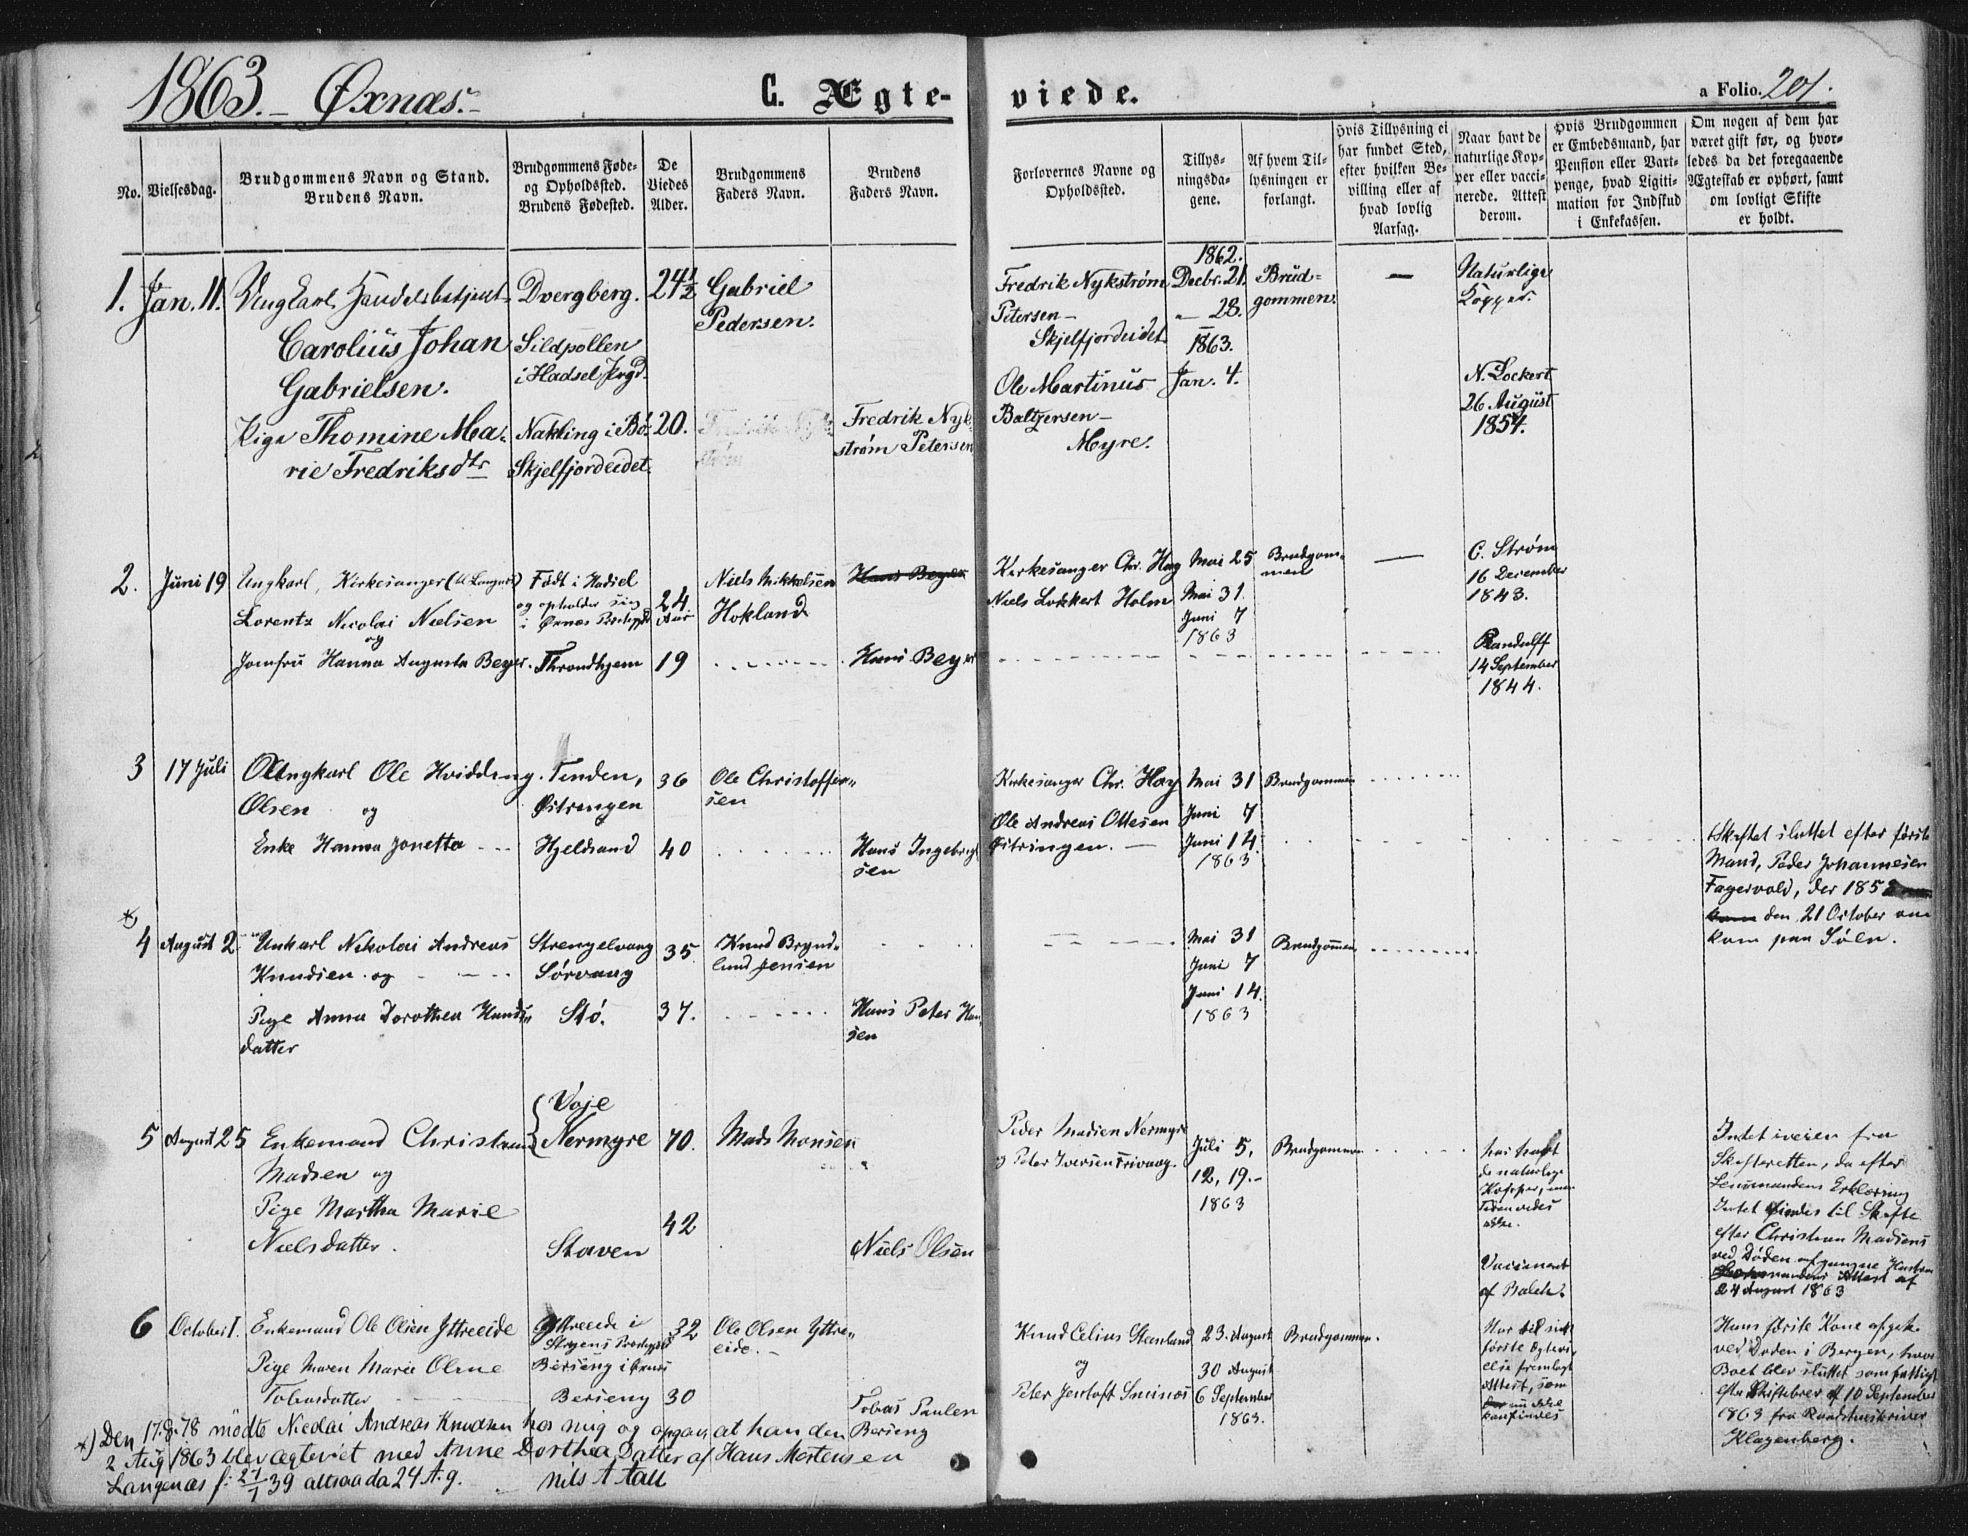 1863. – Øxnæs. –
C. Ægte-
viede.
a Folio. 201.
No.
Vielsesdag.
Brudgommens Navn og Stand.
Brudens Navn.
Brudgommens Føde-
og Opholdssted.
Brudens Fødested.
De
Viedes
Alder.
Brudgommens
Faders Navn.
Brudens
Faders Navn.
Forlovernes Navne og
Opholdssted.
Tillys-
ningsda-
gene.
Af hvem Til-
lysningen er
forlangt.
Hvis Tillysning ei
har fundet Sted,
efter hvilken Be-
villing eller af
hvad lovlig
Aarsag.
Naar havt de
naturlige Kop-
per eller vacci-
nerede. Attest
derom.
Hvis Brudgommen
er Embedsmand, har
Pension eller Vart-
penge, hvad Ligiti-
mation for Indskud
i Enkekassen.
Om nogen af dem har
været gift før, og hvor-
ledes da det foregaaende
Ægteskab er ophørt, samt
om lovligt Skifte
er holdt.
1. Jan. 11.
Ungkarl, Handelsbetjent
Carolius Johan
Gabrielsen.
Pige Thomine Ma-
rie Fredriksdtr
Dvergberg.
Sildpollen
i Hadsel Prgd.
Nakling i Bø.
Skjelfjordeidet
24½
20.
Gabriel
Pedersen.
Fredrik Nyk-
strøm Petersen
Fredrik Nykstrøm
Petersen –
Skjelfjordeidet.
Ole Martinus
Baltzersen –
Myre.
1862.
Decbr. 21.
" 28.
1863.
Jan. 4.
Brud-
gommen.
—
Naturlige
Kopper.
N. Lockert
26 August
1854.
2. Juni 19
Ungkarl, Kirkesanger
Lorentz Nicolai Nielsen
og
Jomfru Hanna Augusta Beyer.
Født i Hadsel
og opholder sig
i Øxnes
Throndhjem
24
Aar
19
Niels Mikkelsen
Hokland
Hans Beyer
Hans Beyer
Kirkesanger Chr. Hay
Niels Lokkert Holm
Mai 25
Mai 31.
Juni 7
1863
Brudgom-
men
—
C. Strøm
16 December
1843.
Randulff
14 September
1844.
3 17 Juli
Ungkarl Ole Hvidding
Olsen og
Enke Hanna Jonetta
Tinden,
Østringen
Hjeldsand
36
40
Ole Christoffer-
sen
Hans Ingebrigt
sen
Kirkesanger Chr. Hay
Ole Andreas Ottesen
Østringen. —
Mai 31
Juni 7
Juni 14.
1863
Brudgommen
Skiftet sluttet efter første
Mand, Peder Johannesen
Fagervold, der 185
den 21 October om
kom paa Søen.
*)
4 August 2
Unkarl Nikolai Andreas
Knudsen og
Pige Anna Dorothea Hands
datter
Strengelvaag
Sørvaag
Stø.
35.
37.
Knud Brynd-
lund Jensen
Hans Peter Han
sen
Mai 31
Juni 7
Juni 14.
1863
Brudgommen
5 August 25
Enkemand Christian
Madsen og
Pige Martha Marie
Nielsdatter.
Vaje
Nermyre
Staven
70.
42
Mads Monsen
Niels Olsen
Peder Madsen Nermyre
og Peter Iversen Frivaag.
Juli 5,
12, 19. –
1863
Brudgommen
har havt
de naturlige
Kopper, men
Tiden vides
ikke.
Vaccineret
af Balch.
Intet iveien fra
Skifteretten, da efter
Lensmandens Erklæring
Intet findes til Skifte
efter Christian Madsens
ved Døden afgangne Hustru
Attest af
24 August 1863
6 October 1.
Enkemand Ole Olsen Yttreeide
Pige Maren Marie Oline
Tobiasdatter
Yttreeide i
Berseng i Øxnes
Berseng
32
30
Ole Olsen Yttre-
eide. –
Tobias Paulen
Berseng
Knud Celius Steenland
og
Peter Jentoft Smines
23. August
30 August
6 September
1863.
Brudgommen.
Har til sit
første Ægtesk-
else fremlagt
Attest, som
nu ikke
kan findes
Hans første Kone afgik
ved Døden i Bergen, hvor
Boet blev sluttet som fattigt
efter Skiftebrev af 10 September
1863 fra Raadstueskriver
Klagenberg.
*) Den 17-8-78 mödte Nicolai Andreas Knudsen hos mig og opgav, at han den
2 Aug 1863 blev ægteviet med Anne Dorthea, Datter af Hans Mortensen
Langenæs f. 27/1 39 altsaa da 24 A. g. Nils A Aall